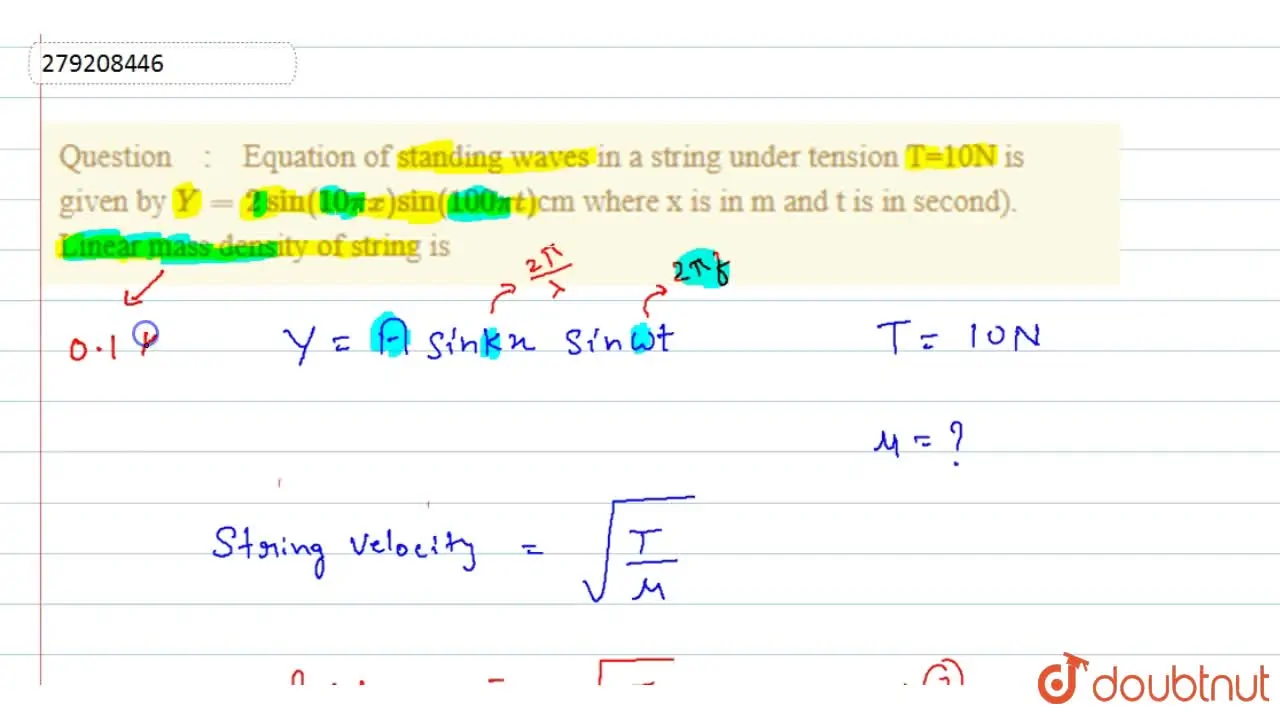 279208446
Question : Equation of standing waves in a string under tension T=10N is
given by Y = 2 sin(10πx)sin(100πt)cm where x is in m and t is in second).
Linear mass density of string is
2π/λ
2πf
0.1
Y = A sinkx sinωt
T = 10N
μ = ?
String velocity = √(T/μ)
doubtnut